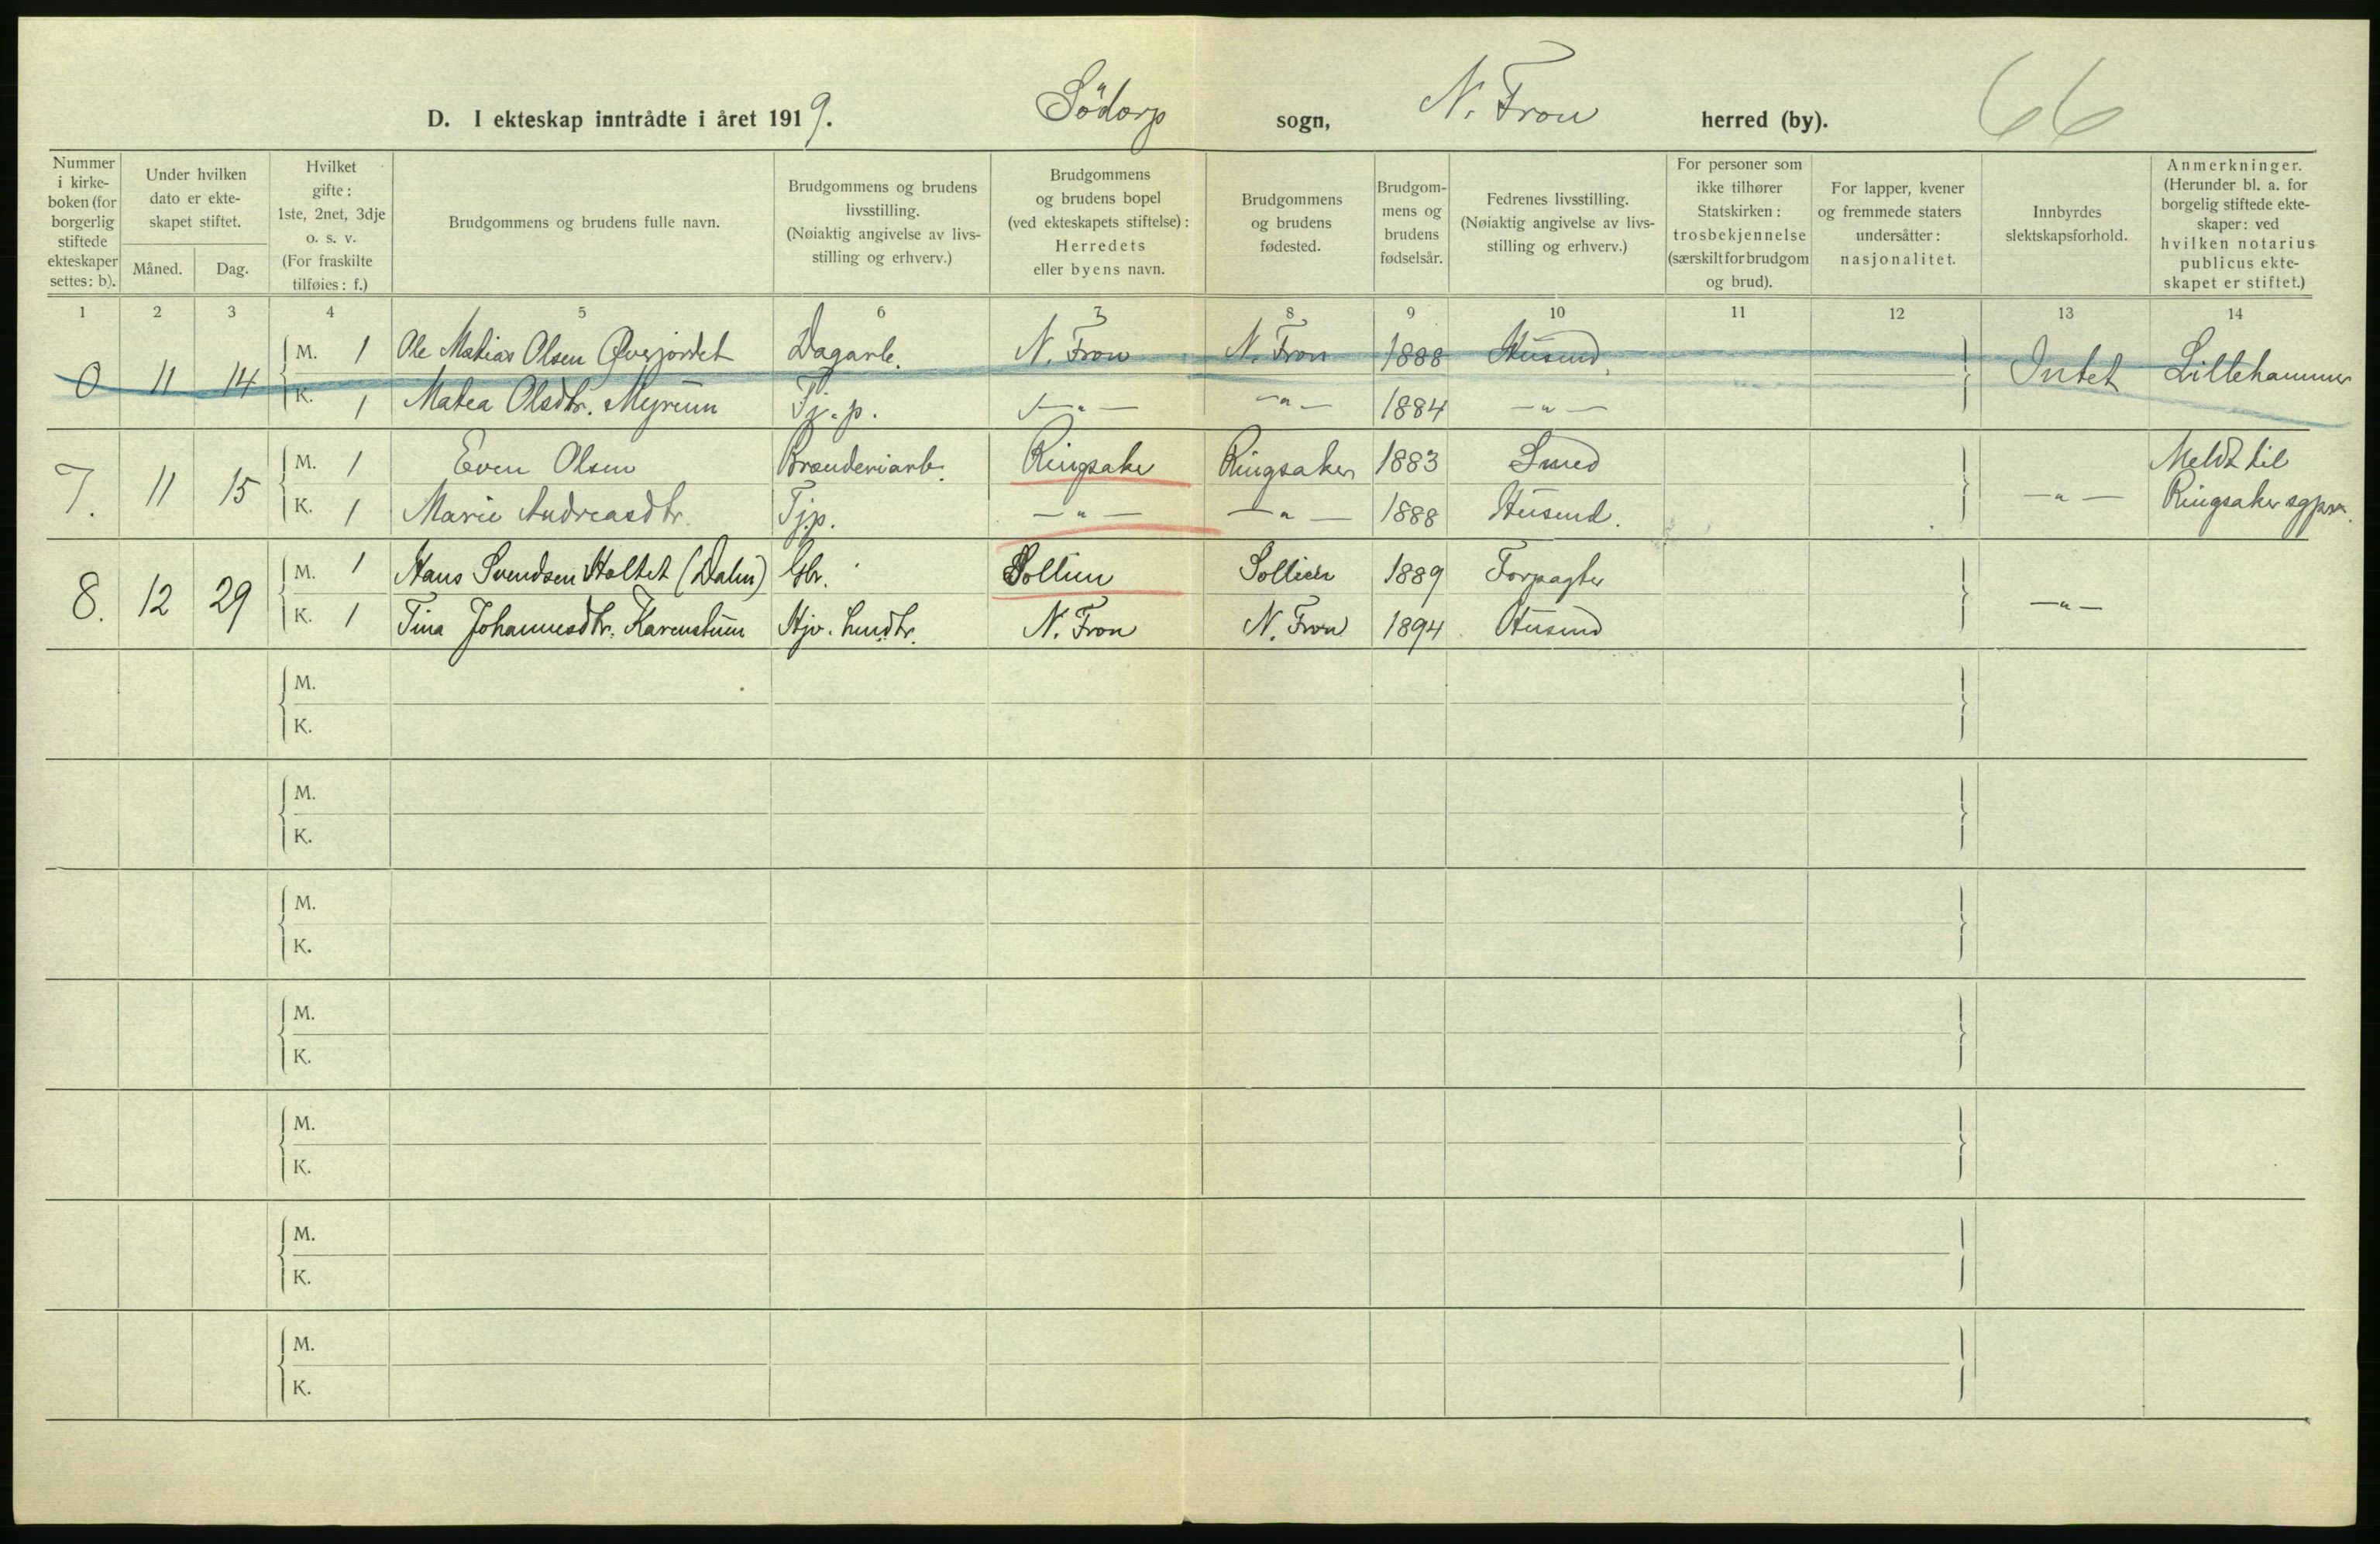 D. I ekteskap inntrådte i året 1919. Södorp sogn, N. Fron herred (by). 66
Nummer i kirke-boken (for borgerlig stiftede ekteskaper settes: b).
Under hvilken dato er ekte-skapet stiftet.
Måned. Dag.
Hvilket gifte: 1ste, 2net, 3dje o. s. v. (For fraskilte tilføies: f.)
Brudgommens og brudens fulle navn.
Brudgommens og brudens livsstilling. (Nøiaktig angivelse av livs-stilling og erhverv.)
Brudgommens og brudens bopel (ved ekteskapets stiftelse): Herredets eller byens navn.
Brudgommens og brudens fødested.
Brudgom-mens og brudens fødselsår.
Fedrenes livsstilling. (Nøiaktig angivelse av livs-stilling og erhverv.)
For personer som ikke tilhører Statskirken: trosbekjennelse (særskilt for brudgom og brud).
For lapper, kvener og fremmede staters undersåtter: nasjonalitet.
Innbyrdes slektskapsforhold.
Anmerkninger. (Herunder bl. a. for borgelig stiftede ekte-skaper: ved hvilken notarius publicus ekte-skapet er stiftet.)
1 2 3 4 5 6 7 8 9 10 11 12 13 14
0 11 14 M. 1 Ole Matias Olsen Øverjordet Dagarb. N. Fron N. Fron 1888 Husmd. Intet Lillehammer
K. 1 Matea Olsdtr. Myrum Tj.p. —"— —"— 1884 —"—
7. 11 15 M. 1 Even Olsen Brænderiarb. Ringsaker Ringsaker 1883 Smed —"— Meldt til
K. 1 Marie Andreasdtr. Tjp. —"— —"— 1888 Husmd. Ringsaker sgpr.
8. 12 29 M. 1 Hans Svendsen Holtet (Dalen) Gbr. Sollien Sollien 1889 Forpagter —"—
K. 1 Tina Johannesdtr. Karenstuen Hjv. N. Fron N. Fron 1894 Husmd
M.
K.
M.
K.
M.
K.
M.
K.
M.
K.
M.
K.
M.
K.